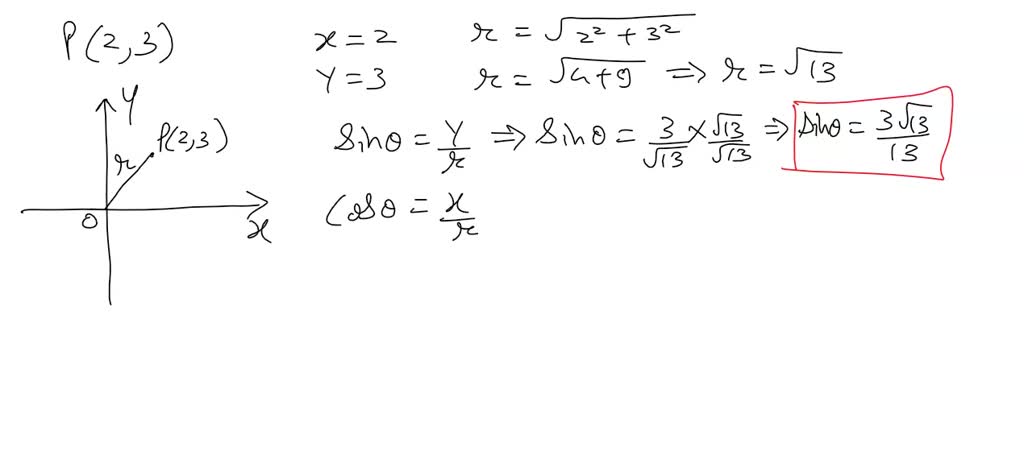 P(2,3)
x = 2
r = √(2² + 3²)
Y = 3
r = √(4+9) ⇒ r = √13
Y
P(2,3)
r
O
x
Sinθ = Y/r ⇒ Sinθ = 3/√13 × √13/√13 ⇒ Sinθ = 3√13/13
Cosθ = x/r